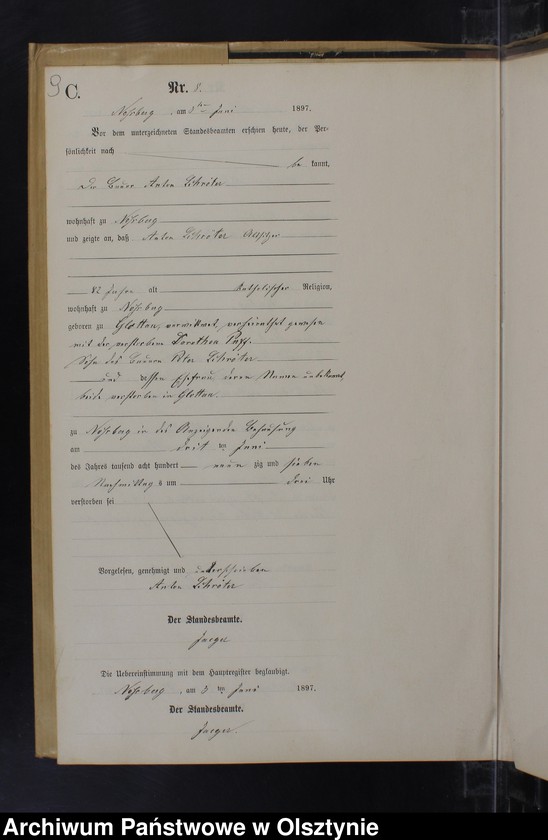 9
C.
Nr. 8.
Noßberg, am 3ten Juni 1897.
Vor dem unterzeichneten Standesbeamten erschien heute, der Per-
sönlichkeit nach
be kannt,
Der Bauer Anton Schröter
wohnhaft zu Noßberg
und zeigte an, daß Anton Schröter Altsitzer
82 Jahre alt katholischer Religion,
wohnhaft zu Noßberg
geboren zu Glottau, verwittwet, verheirathet gewesen
mit der verstorbenen Dorothea
Sohn des Bauern Schröter
und dessen Ehefrau, deren Name unbekannt,
beide verstorben in Glottau.
zu Noßberg in des Anzeigenden Behausung
am drit ten Juni
des Jahres tausend acht hundert neun zig und sieben
Nachmittags um drei Uhr
verstorben sei
Vorgelesen, genehmigt und unterschrieben
Anton Schröter
Der Standesbeamte.
Jaeger
Die Uebereinstimmung mit dem Hauptregister beglaubigt.
Noßberg, am 3 ten Juni 1897.
Der Standesbeamte.
Jaeger.
Archiwum Państwowe w Olsztynie